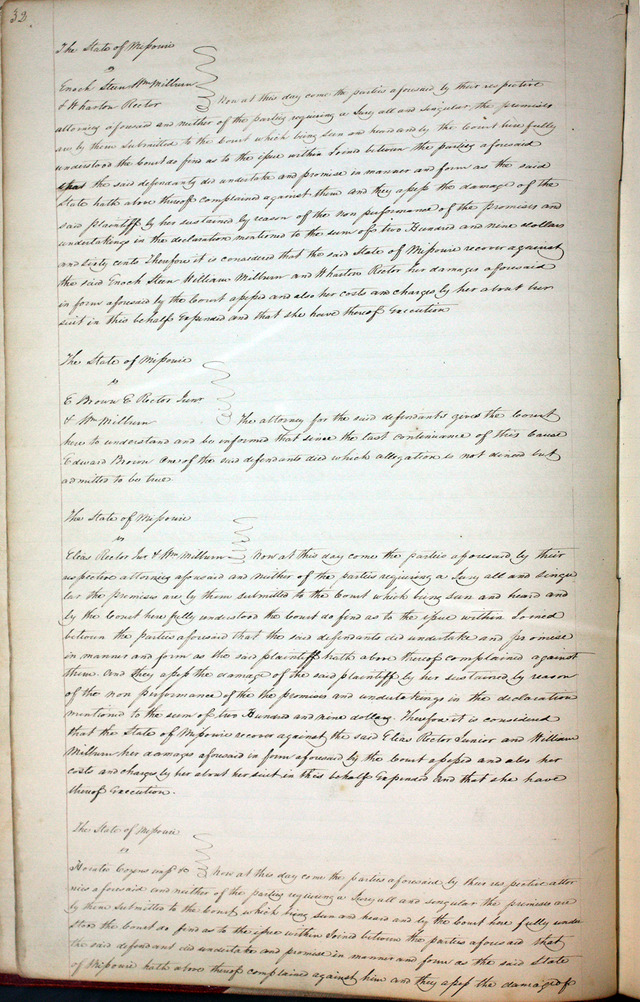 32.
The State of Missouri
vs
Enoch Steen Wm Milburn
& Wharton Rector Now at this day come the parties aforesaid by their respective
attornies aforesaid and neither of the parties requiring a Jury all and singular the premises
are by them submitted to the Court which being seen and heard and by the Court here fully
understood the Court do find as to the issue within Joined between the parties aforesaid
that the said defendants did undertake and promise in manner and form as the said
State hath above thereof complained against them and they assess the damage of the
said plaintiff by her sustained by reason of the non performance of the promises and
undertakings in the declaration mentioned to the sum of two Hundred and nine dollars
and Sixty cents Therefore it is considered that the said State of Missouri recover against
the said Enoch Steen William Milburn and Wharton Rector her damages aforesaid
in form aforesaid by the Court assessed and also her costs and charges by her about her
suit in this behalf Expended and that she have thereof Execution
The State of Missouri
vs
E Brown E Rector Junr
& Wm Milburn The attorney for the said defendants gives the Court
here to understand and be informed that since the last continuance of this Cause
Edward Brown One of the said defendants died which allegation is not denied but
admitted to be true
The State of Missouri
vs
Elias Rector Jnr & Wm Milburn Now at this day come the parties aforesaid by their
respective attornies aforesaid and neither of the parties requiring a Jury all and singu
lar the premises are by them submitted to the Court which being seen and heard and
by the Court here fully understood the Court do find as to the issue within Joined
between the parties aforesaid that the said defendants did undertake and promise
in manner and form as the said plaintiff hath above thereof complained against
them. And they assess the damage of the said plaintiff by her sustained by reason
of the non performance of the the promises and undertakings in the declaration
mentioned to the sum of two Hundred and nine dollars. Therefore it is considered
that the State of Missouri recover against the said Elias Rector Junior and William
Milburn her damages aforesaid in form aforesaid by the Court assessed and also her
costs and charges by her about her suit in this behalf Expended and that she have
thereof Execution.
The State of Missouri
vs
Horatio Cozens &c Now at this day come the parties aforesaid by their respective attor
nies aforesaid and neither of the parties requiring a Jury all and singular the premises are
by them submitted to the Court which being seen and heard and by the Court here fully under
stood the Court do find as to the issue within Joined between the parties aforesaid that
the said defendant did undertake and promise in manner and form as the said State
of Missouri hath above thereof complained against him and they assess the damage of